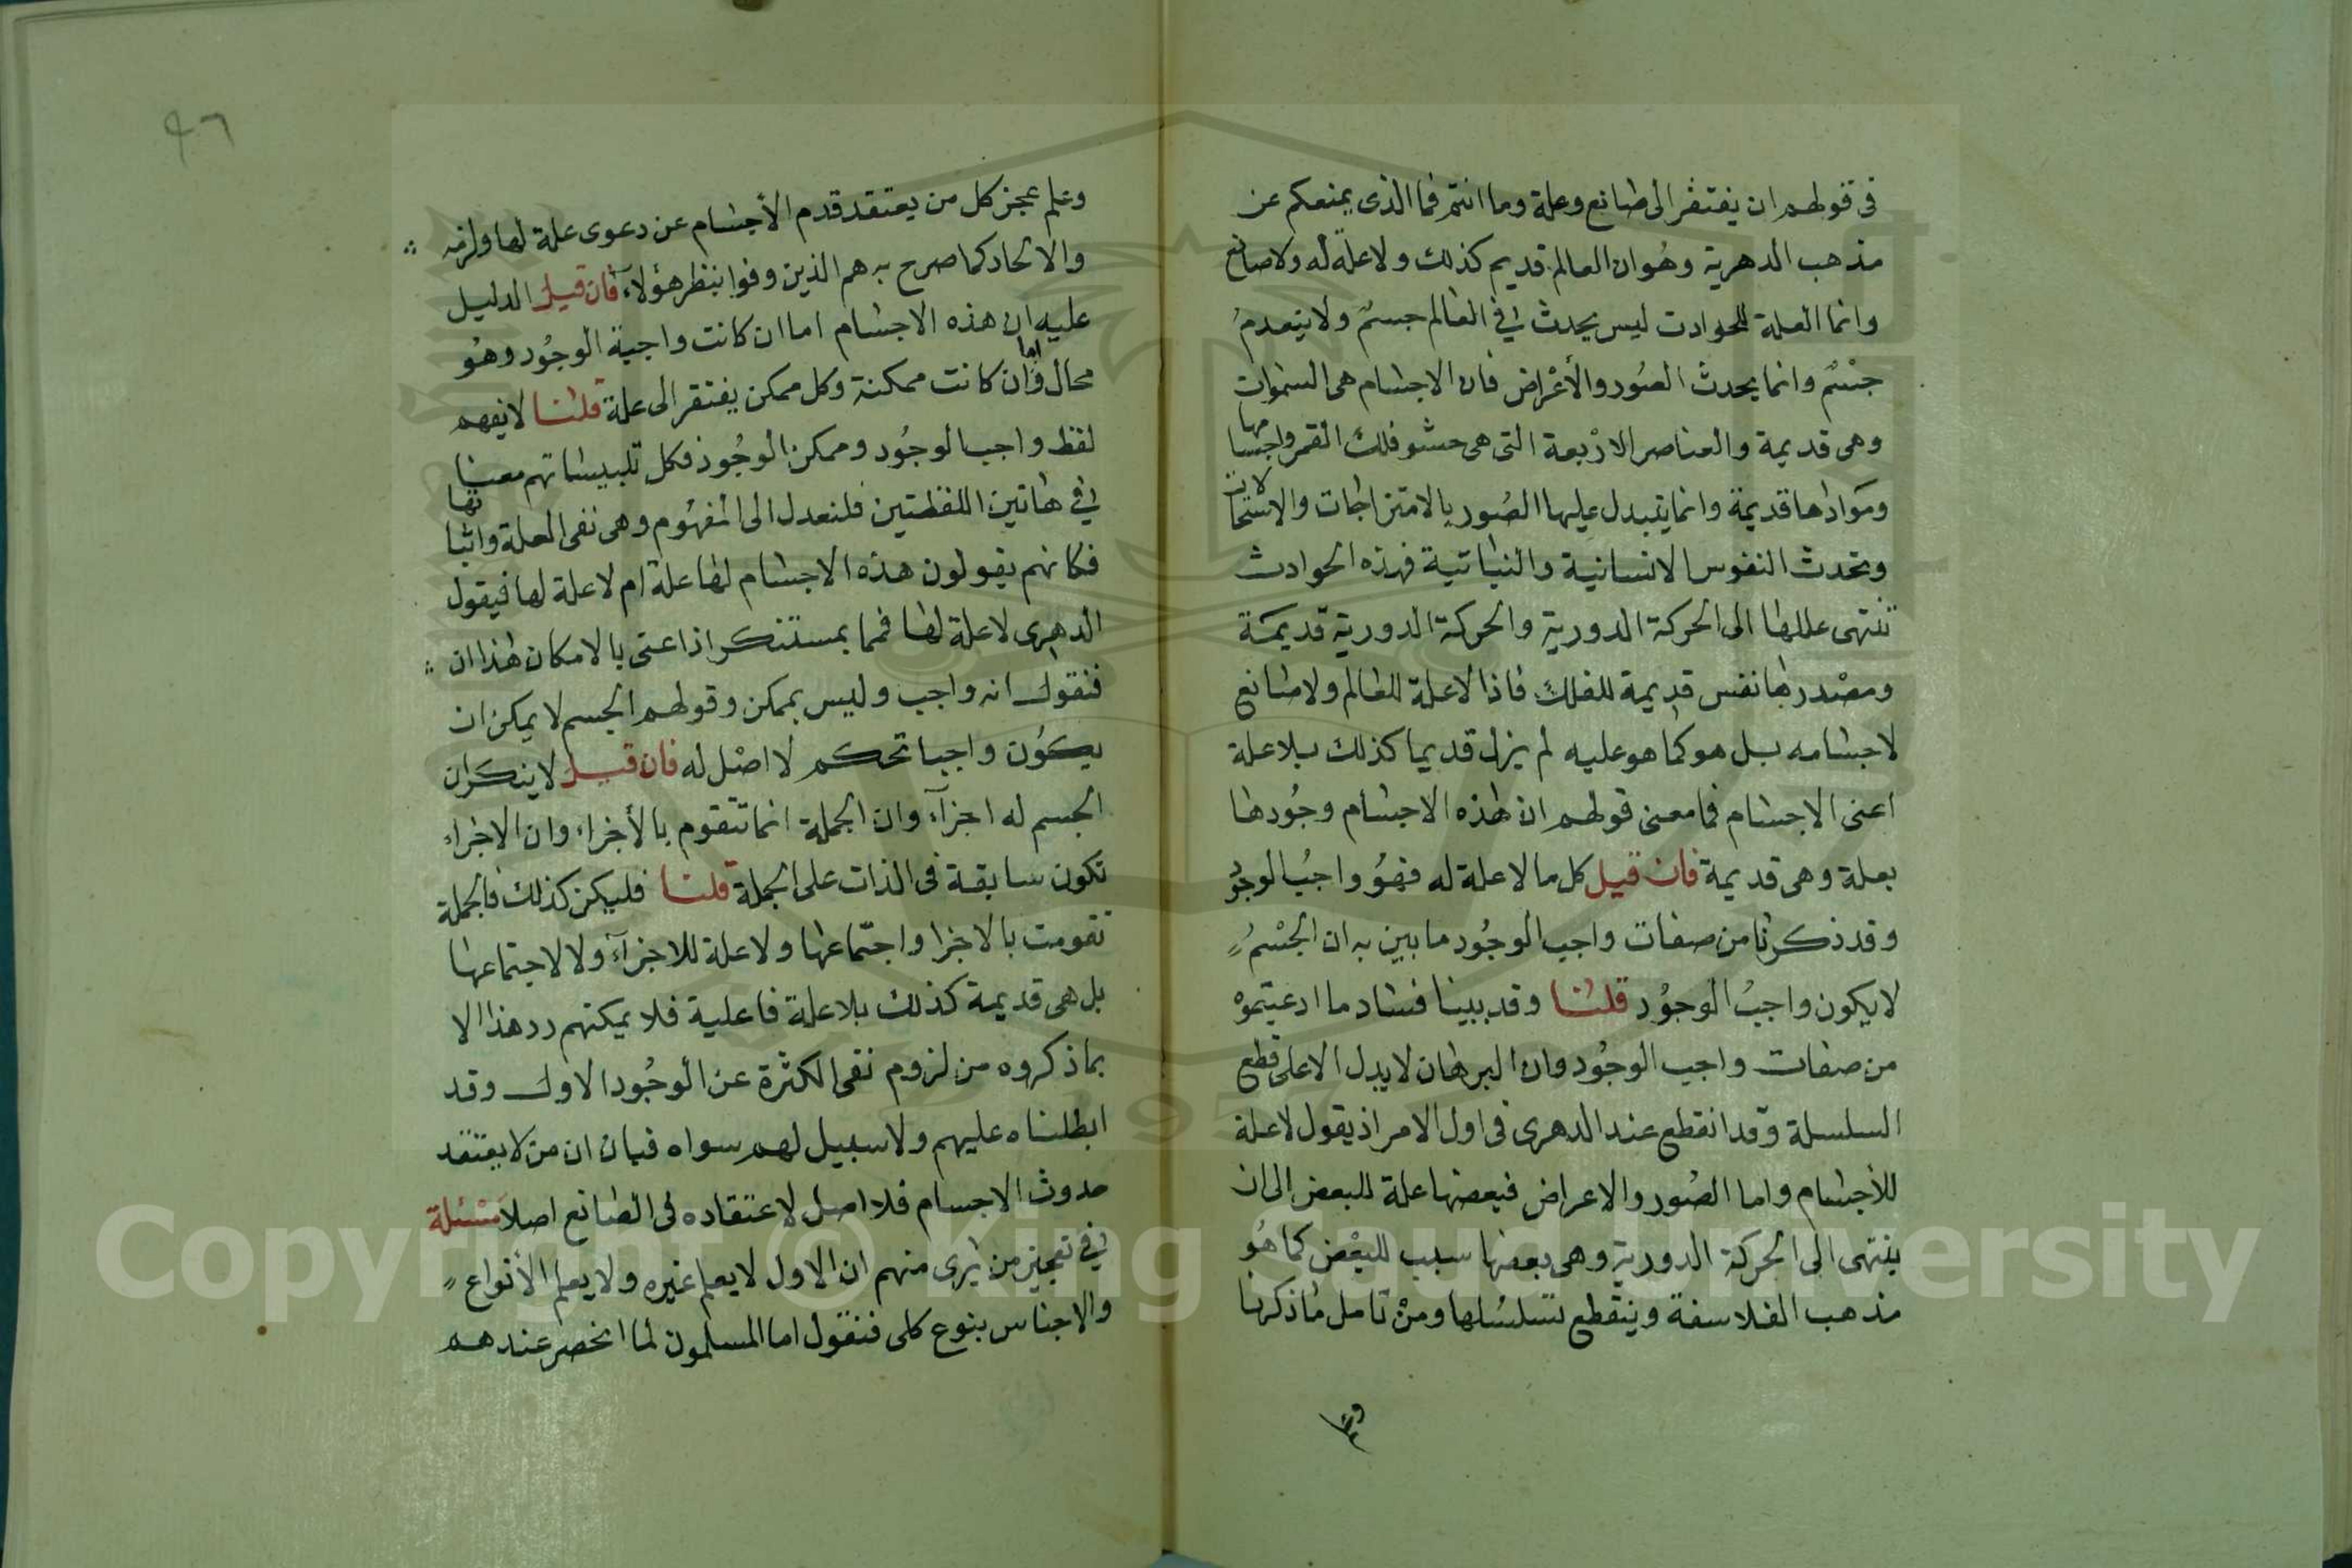 فى قولهم ان يفتقر الى صانع وعلة وما انتم فما الذى يمنعكم عن
مذهب الدهرية وهُوان العالم قديم كذلك ولا علة له ولا صانع
وانما العلة للحوادث ليس يحدث فى العالم جسمٌ ولا ينعدمُ
جسْمٌ وانما يحدث الصُور والأعْراض فان الاجسام هى السموات
وهى قديمة والعناصر الارْبعة التى هى حشو فلك القمر واجسامها
وموادها قديمة وانما يتبدل عليها الصُور بالامتزاجات والاستحالات
وتحدث النفوس الانسانية والنباتية فهذه الحوادث
تنتهى عللها الى الحركة الدورية والحركة الدورية قديمَة
ومصْدرها نفس قديمة للفلك فاذا لا علة للعالم ولا صانع
لاجسامه بل هو كما هو عليه لم يزل قديما كذلك بلا علة
اعنى الاجسام فما معنى قولهم ان هذه الاجسام وجُودها
بعلة وهى قديمة فان قيل كل ما لا علة له فهُو واجبُ الوجُود
وقد ذكرنا من صفات واجب الوجُود ما بين به ان الجسْمُ
لا يكون واجبُ الوجوُد قلنا وقد بينا فساد ما ادعيتموْه
من صفات واجب الوجُود وان البرهان لا يدل الا على قطع
السلسلة وقد انقطع عند الدهرى فى اول الامر اذ يقول لا علة
للأجسام واما الصُور والاعراض فبعضها علة للبعض الى ان
ينتهى الى الحركة الدورية وهى بعضها سبب للبعْض كما هُو
مذهب الفلاسفة وينقطع تسلسُلها ومنْ تامل مُا ذكرنا
وعلم
٩٦
وعلم عجز كل من يعتقد قدم الأجسام عن دعوى علة لها ولزمه
والالحاد كما صرح به هم الذين وفوا بنظر هؤلآء فان قيل الدليل
عليه ان هذه الاجسام اما ان كانت واجبة الوجُود وهُو
محال واما ان كانت ممكنة وكل ممكن يفتقر الى علة قلنا لا نفهم
لفظ واجب الوجُود وممكن الوجُود فكل تلبيساتهم معنا
فى هاتين اللفظتين فلنعدل الى المفهُوم وهى نفى العلة واثباتها
فكانهم يقولون هذه الاجسام لها علة ام لا علة لها فيقول
الدهرى لا علة لها فما بمستنكر اذا عنى بالامكان هذا ان
فنقول انه واجب وليس بممكن وقولهم الجسم لا يمكن ان
يكوُن واجبا تحكم لا اصْل له فان قيل لا ينكَران
الجسم له اجزآء وان الجملة انما تتقوم بالأجزاء وان الاجزاء
تكون سابقة فى الذات على الجملة قلنا فليكن كذلك فالجملة
تقومت بالاجزا واجتماعها ولا علة للاجزآء ولا لاجتماعها
بل هى قديمة كذلك بلا علة فاعلية فلا يمكنهم رد هذا الا
بما ذكروه من لزوم نفى الكثرة عن الوجُود الاول وقد
ابطلناه عليهم ولا سبيل لهم سواه فبان ان من لا يعتقد
حدوث الاجسام فلا اصل لاعتقاده فى الصانع اصلا مسْئلة
فى تعجيز من يرى منهم ان الاول لا يعلم غيره ولا يعلم الأنواع
والاجناس بنوع كلى فنقول اما المسلمون لما انحصر عندهم
Copyright © King Saud University
1957